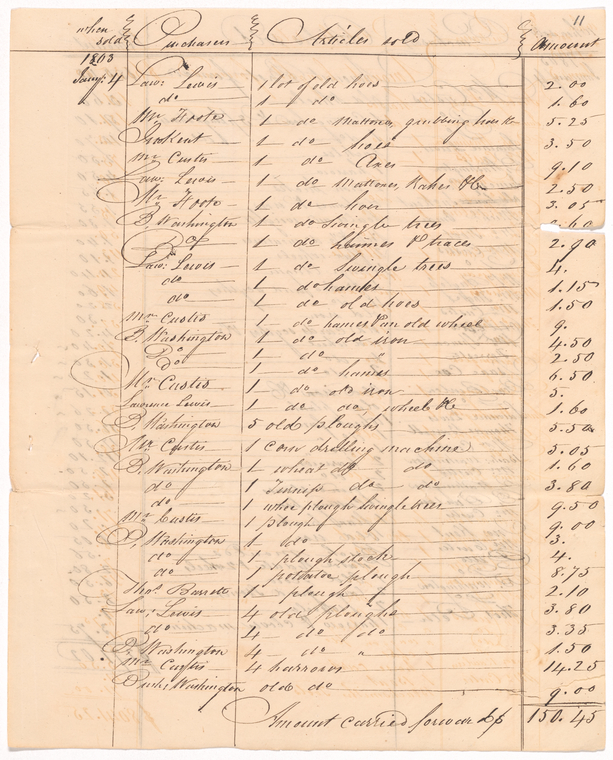 11
when sold Purchasers Articles sold Amount
1803
Jany: 4 Law: Lewis 1 lot of old hoes 2.00
do 1 do 1.60
Mr Foote 1 do mattoxes, grubbing hoes &c 5.25
1 do hoes 3.50
Mr Custis 1 do Axes 9.10
Law: Lewis 1 do Mattoxes, Rakes &c 2.50
Mr Foote 1 do hoes 3.05
B, Washington 1 do Swingle trees .60
Do 1 do hames & traces 2.90
Law: Lewis 1 do Swingle trees 4.
do 1 do hames 1.15
do 1 do old hoes 1.50
Mr Custis 1 do hames & an old wheel 9.
B. Washington 1 do old iron 4.50
Do 1 do " 2.50
Do 1 do hames 6.50
Mr Custis 1 do old iron 5.
Lawrence Lewis 1 do do, wheel &c 1.60
B. Washington 5 old ploughs 5.50
Mr Custis 1 corn drilling machine 5.05
B. Washington 1 wheat do do 1.60
do 1 Turnip do do 3.80
do 1 plough Swingle trees 9.50
Mr Custis 1 plough 9.00
B, Washington 1 do 3.
do 1 plough stock 4.
do 1 potatoe plough 8.75
Thos. Barrett 1 plough 2.10
Law; Lewis 4 old ploughs 3.80
do 4 do do 3.35
B. Washington 4 do " 1.50
Mr Custis 4 harrows 14.25
Washington old do 9.00
Amount carried forward 150.45